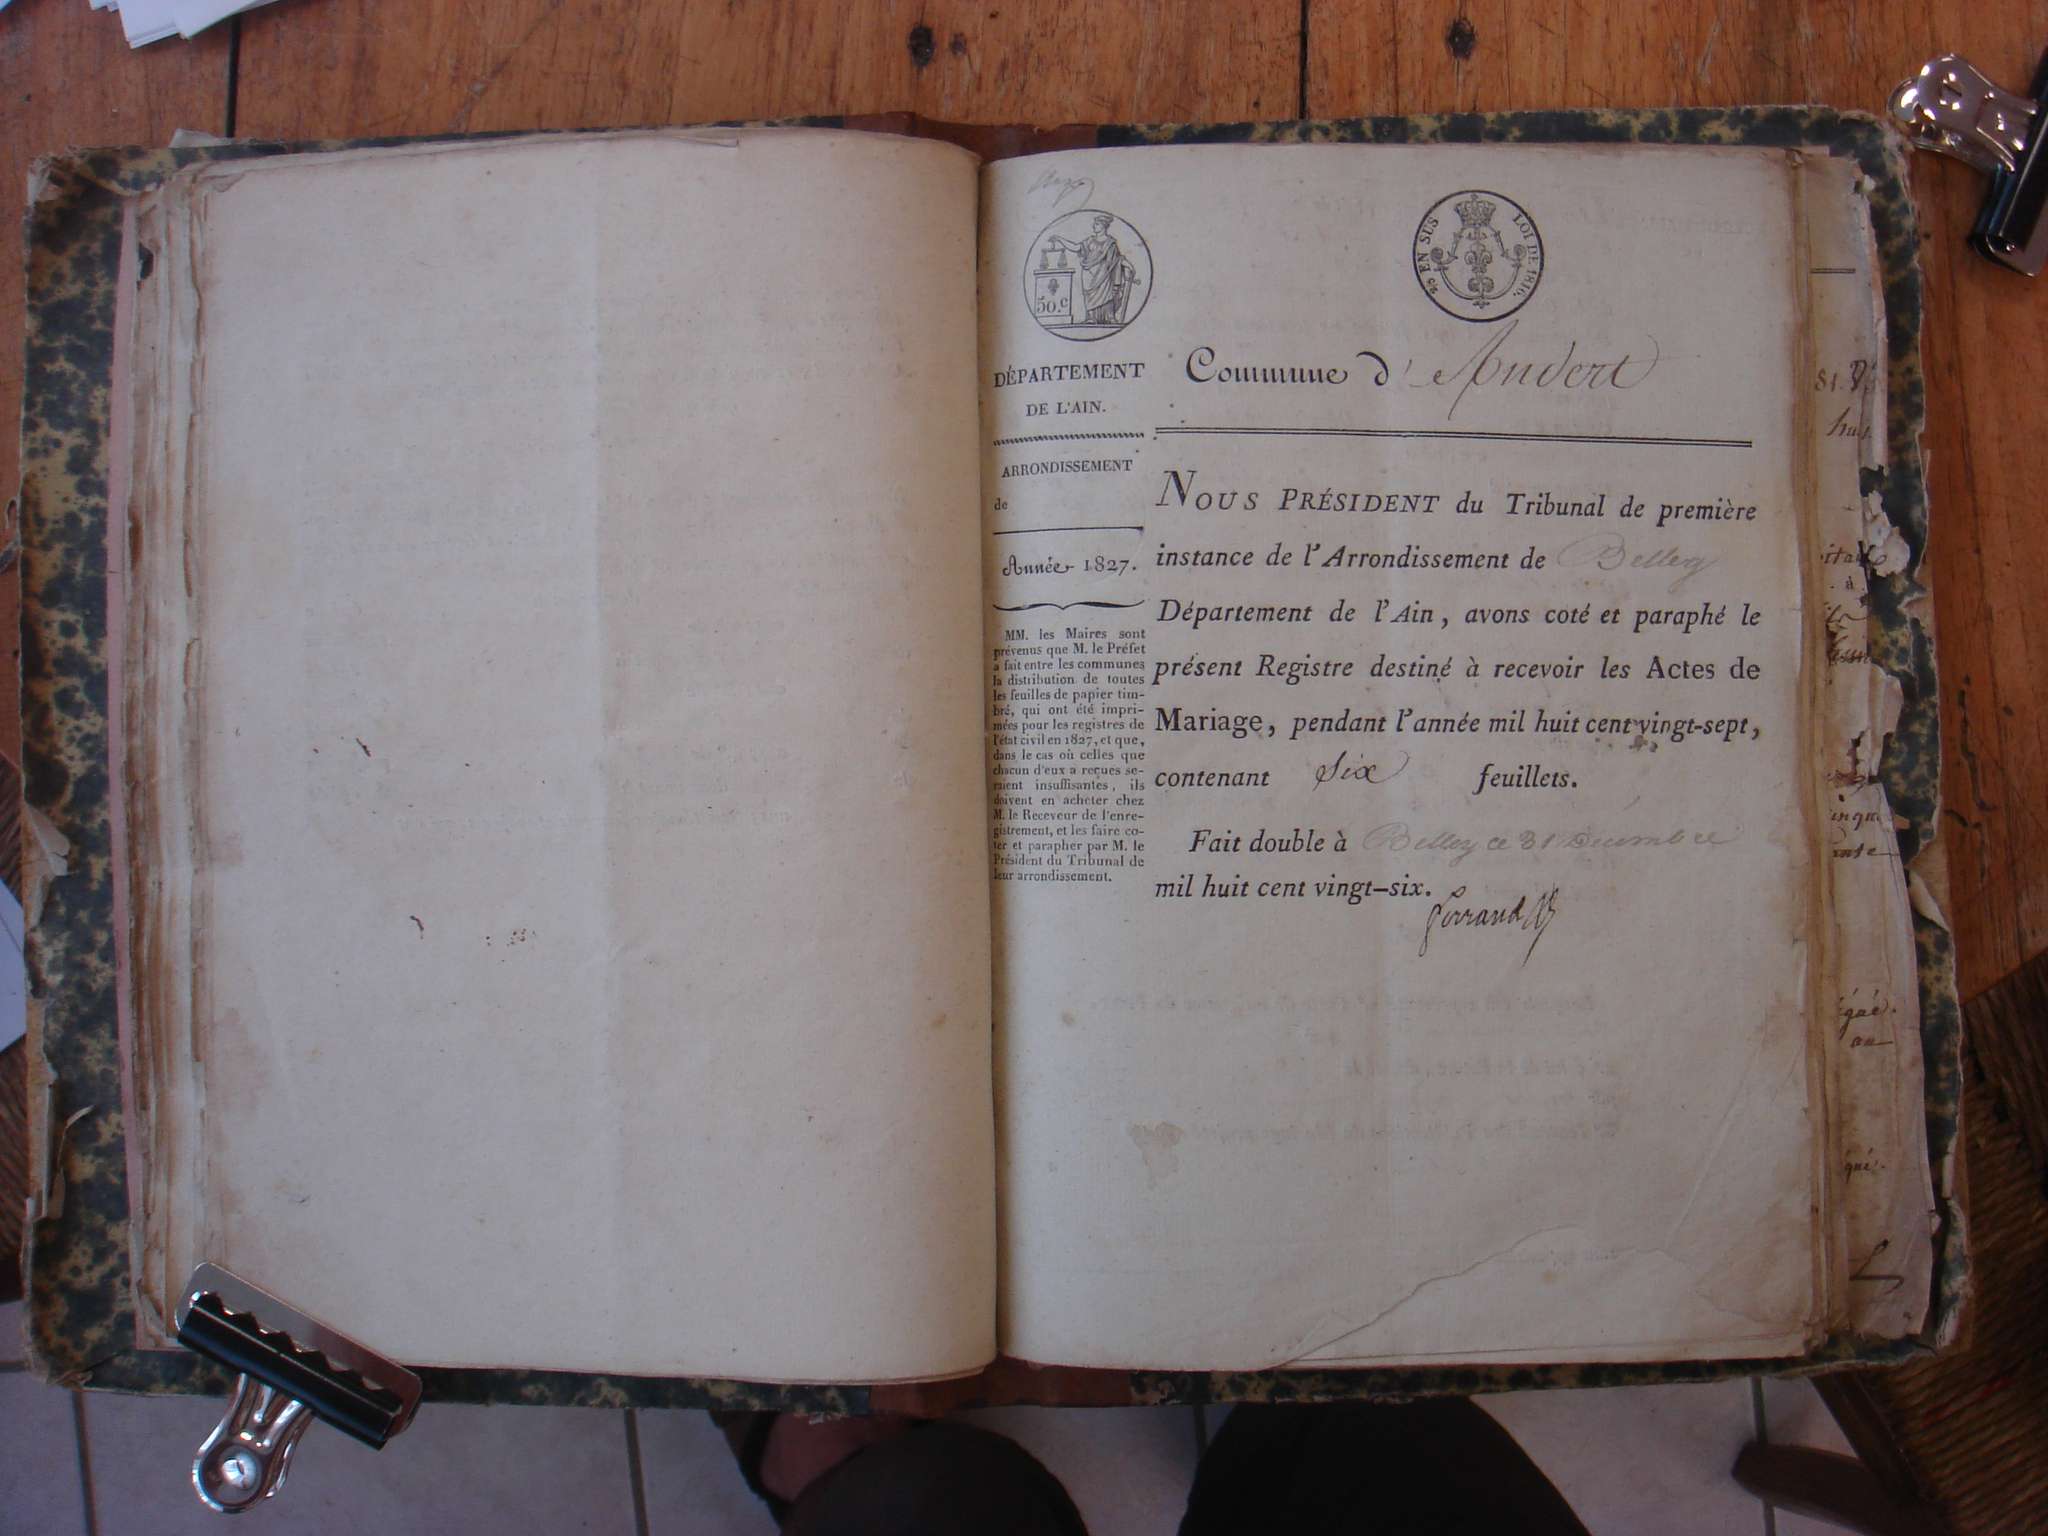 50.c
EN SUS
LOI DE 1816.
DÉPARTEMENT
DE L'AIN.
ARRONDISSEMENT
de
Année 1827.
MM. les Maires sont
prévenus que M. le Préfet
a fait entre les communes
la distribution de toutes
les feuilles de papier tim-
bré, qui ont été impri-
mées pour les registres de
l'état civil en 1827, et que,
dans le cas où celles que
chacun d'eux a reçues se-
raient insuffisantes, ils
doivent en acheter chez
M. le Receveur de l'enre-
gistrement, et les faire co-
ter et parapher par M. le
Président du Tribunal de
leur arrondissement.
Commune d' Andert
NOUS PRÉSIDENT du Tribunal de première
instance de l'Arrondissement de Belley
Département de l'Ain, avons coté et paraphé le
présent Registre destiné à recevoir les Actes de
Mariage, pendant l'année mil huit cent vingt-sept,
contenant six feuillets.
Fait double à Belley ce 31 Décembre
mil huit cent vingt-six.